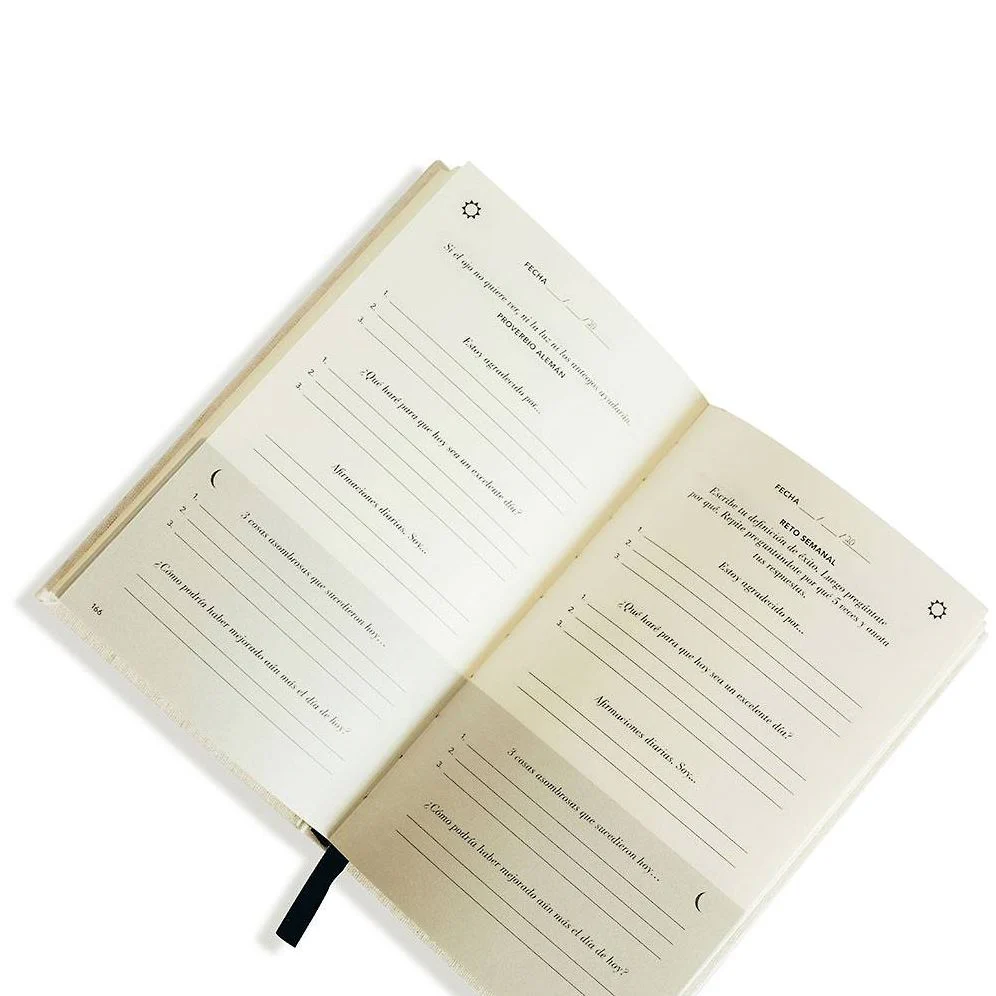 FECHA ___/___/20___
Si el ojo no quiere ver, ni la luz ni los anteojos ayudarán.
PROVERBIO ALEMÁN
Estoy agradecido por...
1.
2.
3.
¿Qué haré para que hoy sea un excelente día?
1.
2.
3.
Afirmaciones diarias. Soy...
3 cosas asombrosas que sucedieron hoy...
1.
2.
3.
¿Cómo podría haber mejorado aún más el día de hoy?
166
FECHA ___/___/20___
RETO SEMANAL
Escribe tu definición de éxito. Luego pregúntate
por qué. Repite preguntándote por qué 5 veces y anota
tus respuestas.
Estoy agradecido por...
1.
2.
3.
¿Qué haré para que hoy sea un excelente día?
1.
2.
3.
Afirmaciones diarias. Soy...
3 cosas asombrosas que sucedieron hoy...
1.
2.
3.
¿Cómo podría haber mejorado aún más el día de hoy?